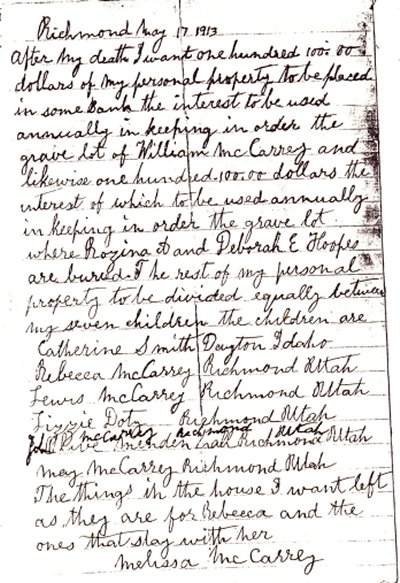 Richmond May 17 1913
After my death I want one hundred 100.00
dollars of my personal property to be placed
in some Bank the interest to be used
annually in keeping in order the
grave lot of William McCarrey and
likewise one hundred 100.00 dollars the
interest of which to be used annually
in keeping in order the grave lot
where Rozina A and Deborah E Hoopes
are buried. The rest of my personal
property to be divided equally between
my seven children the children are
Catherine Smith Dayton Idaho
Rebecca McCarrey Richmond Utah
Lewis McCarrey Richmond Utah
Lizzie Doty Richmond Utah
McCarrey Richmond Utah
Olive Mendenhall Richmond Utah
May McCarrey Richmond Utah
The things in the house I want left
as they are for Rebecca and the
ones that stay with her
Melissa McCarrey